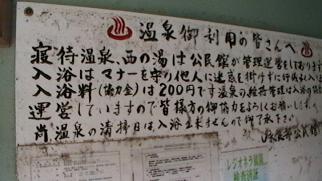 ♨ 温泉御利用の皆さんへ ♨
寝待温泉、西の湯は公民館が管理運営をしております
入浴はマナーを守り他人に迷惑を掛けずに
入浴料(協力金)は200円です温泉の維持管理は入浴の
運営していますので皆様方の御協力をよろしくお願いします。
尚温泉の清掃日は入浴出来ませんので御了承下さい
公民館
レジオネラ属菌
検査済証